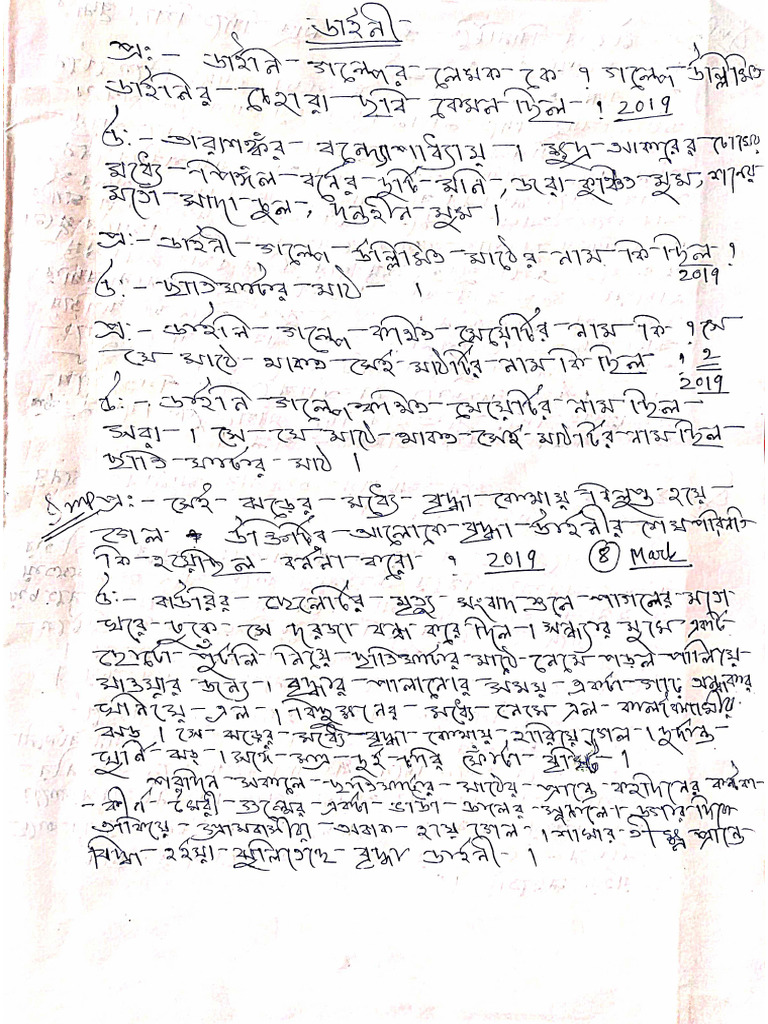 ডাইনী
প্রঃ- ডাইনি গল্পের লেখক কে ? গল্পে উল্লিখিত
ডাইনির চেহারা ছবি কেমন ছিল ? 2019
উঃ- তারাশঙ্কর বন্দ্যোপাধ্যায় । ক্ষুদ্র আকারের চোখের
মধ্যে পিঙ্গল বর্নের দুটি মনি, জরা কুঞ্চিত মুখ, শনের
মতো সাদা চুল, দন্তহীন মুখ ।
প্রঃ- ডাইনী গল্পে উল্লিখিত মাঠের নাম কি ছিল ?
2019
উঃ- ছাতিফাটার মাঠ ।
প্রঃ- ডাইনি গল্পে কথিত মেয়েটির নাম কি ? সে
যে মাঠে থাকত সেই মাঠটির নাম কি ছিল ? 2
2019
উঃ- ডাইনি গল্পে কথিত মেয়েটির নাম ছিল
সরা । সে যে মাঠে থাকত সেই মাঠটির নাম ছিল
ছাতি ফাটার মাঠ ।
Imp প্রঃ- সেই ঝড়ের মধ্যে বৃদ্ধা কোথায় বিলুপ্ত হয়ে
গেল উক্তিটির আলোকে বৃদ্ধা ডাইনীর শেষ পরিনতি
কি হয়েছিল বর্ননা করো ? 2019 8 Mark
উঃ- বাউরির ছেলেটির মৃত্যু সংবাদ শুনে পাগলের মতো
ঘরে ঢুকে সে দরজা বন্ধ করে দিল । সন্ধ্যার মুখে একটি
ছোটো পুঁটলি নিয়ে ছাতিফাটার মাঠে নেমে পড়ল পালিয়ে
যাওয়ার জন্যে । বৃদ্ধার পালানোর সময় একটা গাঢ় অন্ধকার
ঘনিয়ে এল । কিছুক্ষনের মধ্যে নেমে এল কালবৈশাখীর
ঝড় । সে ঝড়ের মধ্যে বৃদ্ধা কোথায় হারিয়ে গেল । দুর্দান্ত
ঘূর্নি ঝড় । সঙ্গে মাত্র দুই চারি ফোঁটা বৃষ্টি ।
পরদিন সকালে ছাতিফাটার মাঠের প্রান্তে বহুদিনের কণ্টকা-
কীর্ন খৈরী গুল্মের একটা ভাঙা ডালের সূচালো ডগার দিকে
তাকিয়ে গ্রামবাসীরা অবাক হয়ে গেল । শাখার তীক্ষ্ণ প্রান্তে
বিদ্ধা হইয়া ঝুলিতেছে বৃদ্ধা ডাইনী ।